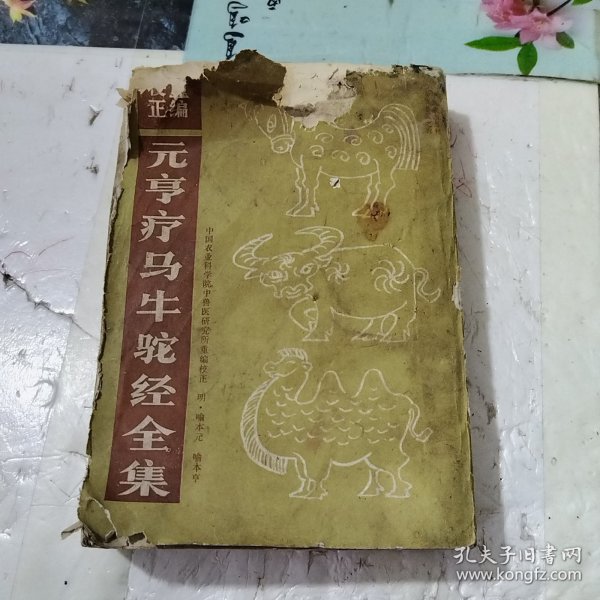 正编
元亨疗马牛驼经全集
中国农业科学院中兽医研究所重编校正 明·喻本元 喻本亨
孔夫子旧书网
www.kongfz.com